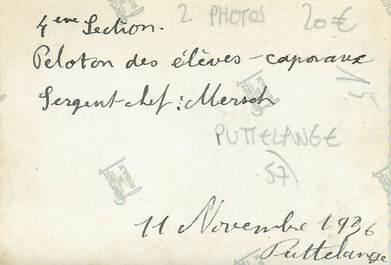 2 PHOTOS 20€
4eme Section.
Peloton des élèves-caporaux
15
Sergent-chef : Mersch
PUTTELANGE
57
11 Novembre 1936
Puttelange